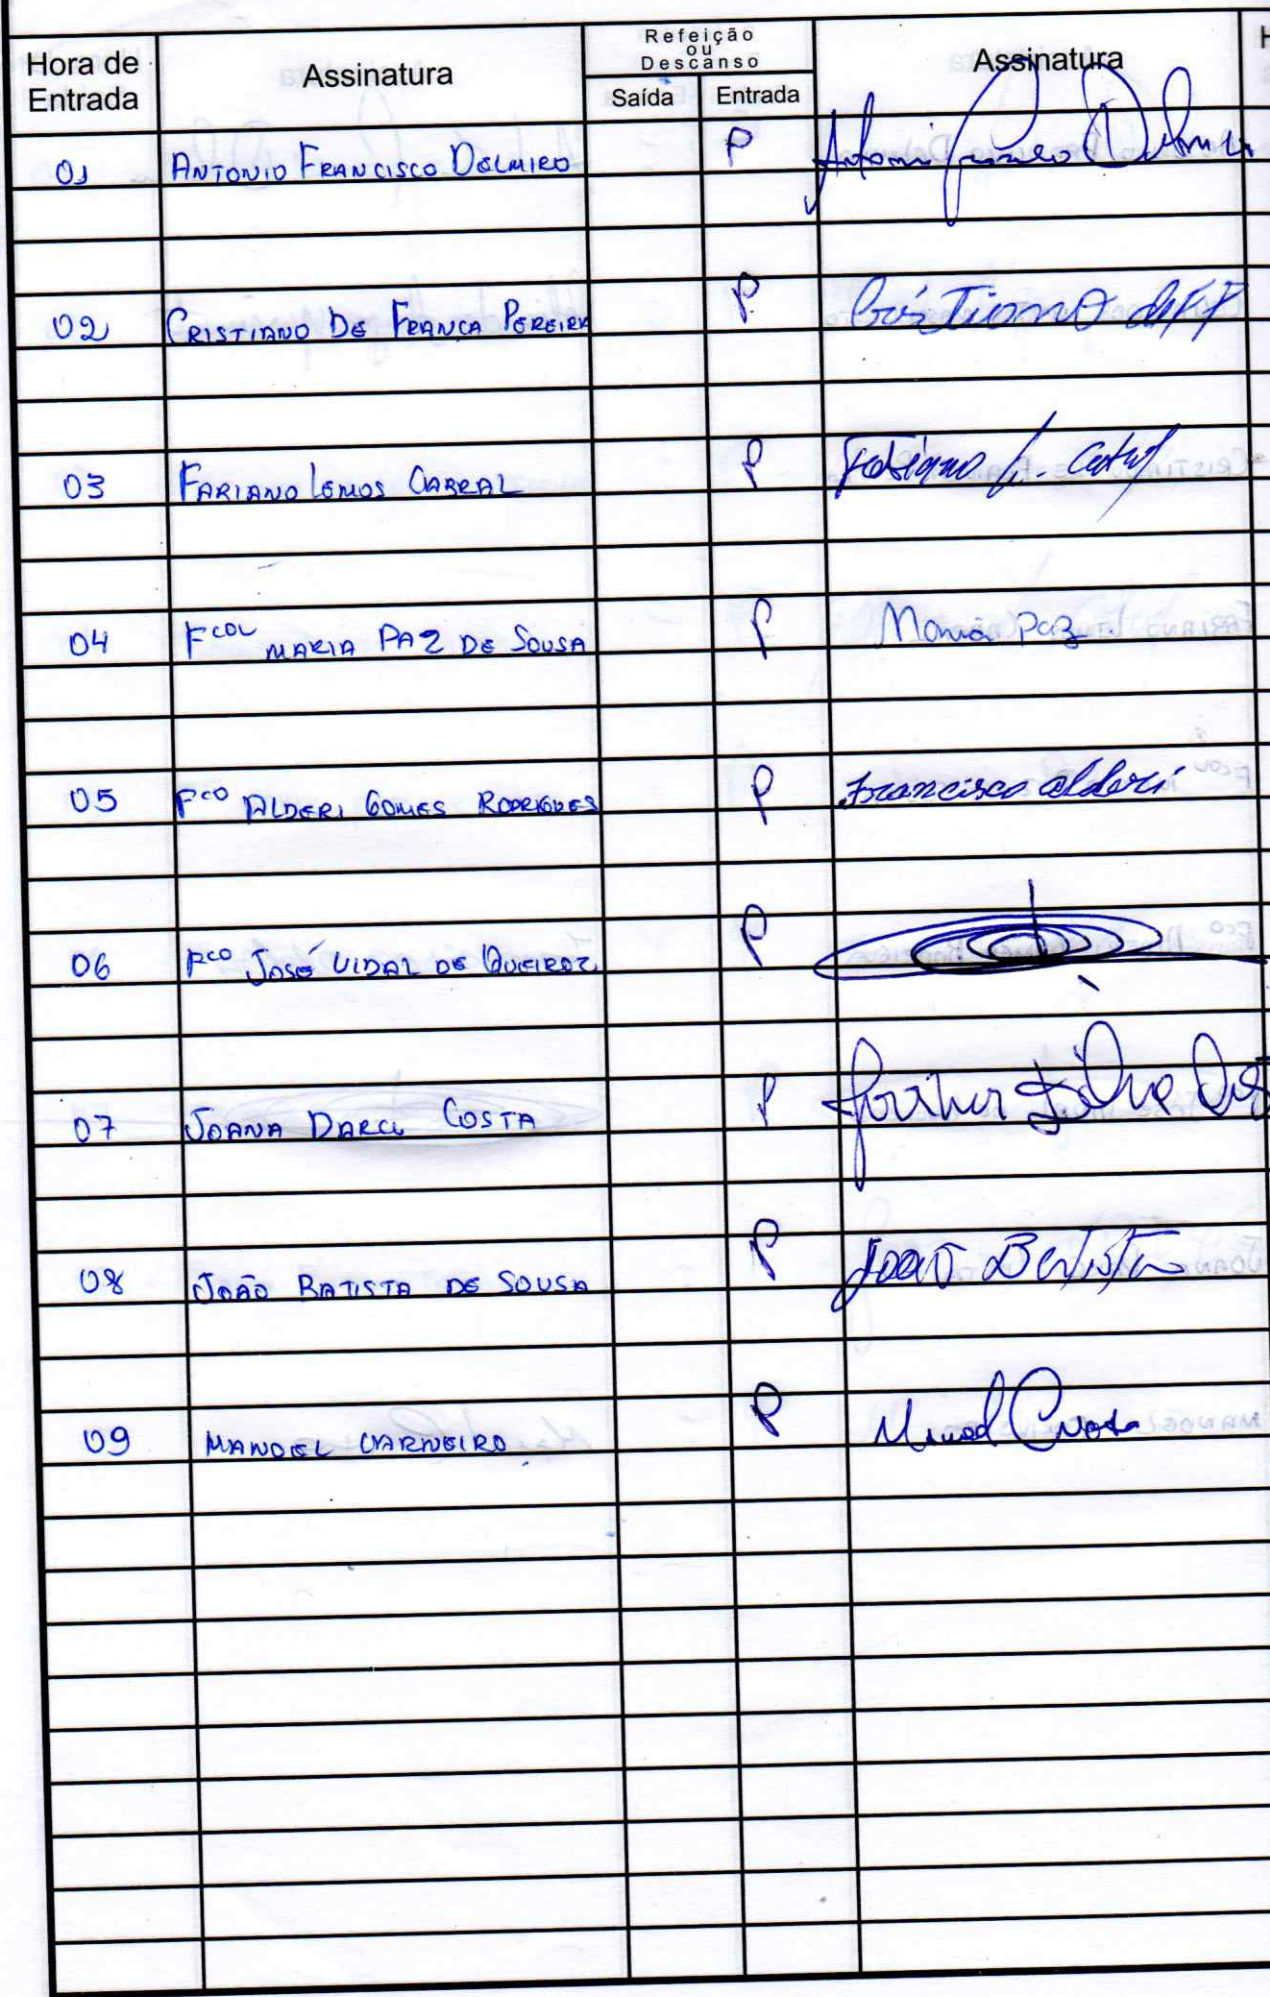 Hora de Entrada Assinatura Refeição ou Descanso Assinatura
Saída Entrada
01 ANTONIO FRANCISCO DELMIRO P Antonio Delmiro
02 CRISTIANO DE FRANCA PEREIRA P Cristiano
03 FABIANO LEMOS CABRAL P Fabiano L. Cabral
04 FCOL MARIA PAZ DE SOUSA P Maria Paz
05 FCO ALDERI GOMES RODRIGUES P Francisco alderi
06 FCO JOSÉ VIDAL DE QUEIROZ P
07 JOANA DARCL COSTA P
08 JOÃO BATISTA DE SOUSA P João Batista
09 MANOEL CARNEIRO P Manoel